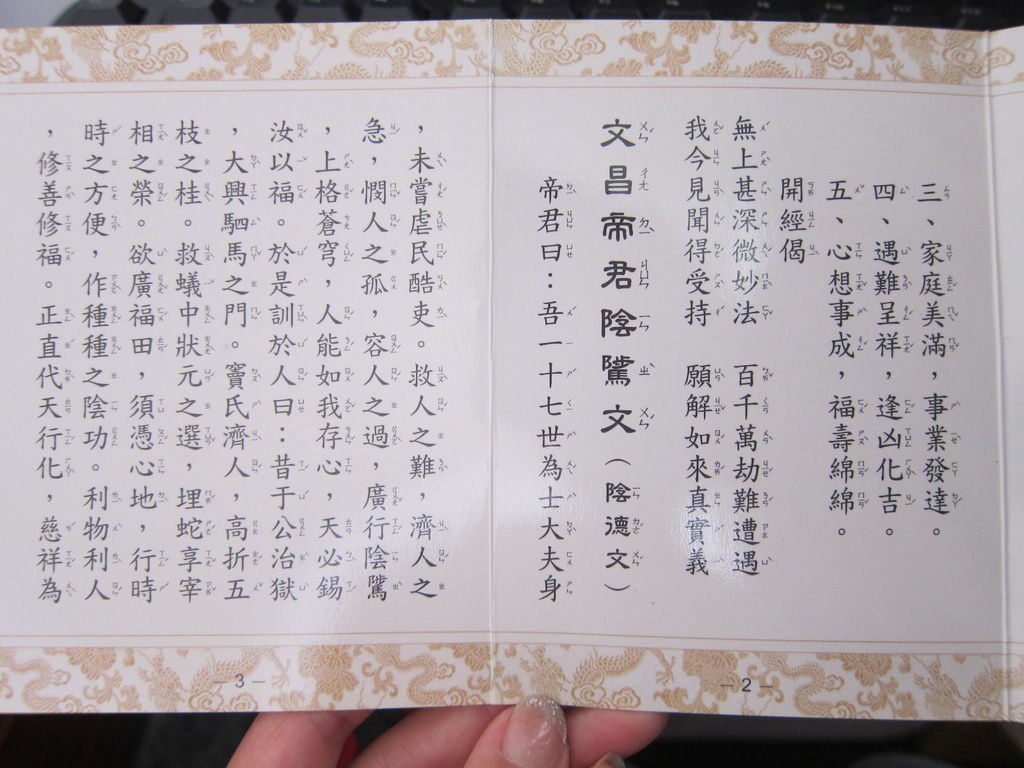 三、家庭美滿，事業發達。
四、遇難呈祥，逢凶化吉。
五、心想事成，福壽綿綿。
開經偈
無上甚深微妙法 百千萬劫難遭遇
我今見聞得受持 願解如來真實義
文昌帝君陰騭文（陰德文）
帝君曰：吾一十七世為士大夫身
－2－
，未嘗虐民酷吏。救人之難，濟人之
急，憫人之孤，容人之過，廣行陰騭
，上格蒼穹，人能如我存心，天必錫
汝以福。於是訓於人曰：昔于公治獄
，大興駟馬之門。竇氏濟人，高折五
枝之桂。救蟻中狀元之選，埋蛇享宰
相之榮。欲廣福田，須憑心地，行時
時之方便，作種種之陰功。利物利人
，修善修福。正直代天行化，慈祥為
－3－